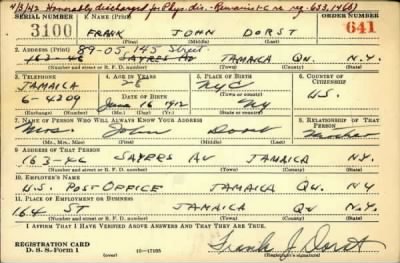 4/3/42 Honorably discharged for Phys. dis. - Remains 1-C re reg. - 633.1(b))
SERIAL NUMBER 1. NAME (Print) ORDER NUMBER
3100 FRANK JOHN DORST 641
2. ADDRESS (Print) 89-05, 145 Street
163-46 SAYRES AV JAMAICA QN. N.Y.
(Number and street or R. F. D. number) (Town) (County) (State)
3. TELEPHONE 4. AGE IN YEARS 5. PLACE OF BIRTH 6. COUNTRY OF CITIZENSHIP
JAMAICA 28 NYC
6-4209 DATE OF BIRTH (Town or county) U.S.
June 16 1912 NY
(Exchange) (Number) (Mo.) (Day) (Yr.) (State or country)
7. NAME OF PERSON WHO WILL ALWAYS KNOW YOUR ADDRESS 8. RELATIONSHIP OF THAT PERSON
Mrs. John Dorst Mother
(Mr., Mrs., Miss) (First) (Middle) (Last)
9. ADDRESS OF THAT PERSON
163-46 SAYRES AV JAMAICA N.Y.
(Number and street or R. F. D. number) (Town) (County) (State)
10. EMPLOYER'S NAME
U.S. POST OFFICE JAMAICA QN. NY
11. PLACE OF EMPLOYMENT OR BUSINESS
164 ST JAMAICA QN. N.Y.
(Number and street or R. F. D. number) (Town) (County) (State)
I AFFIRM THAT I HAVE VERIFIED ABOVE ANSWERS AND THAT THEY ARE TRUE.
REGISTRATION CARD
D. S. S. Form 1 (over) 16-17105 Frank J Dorst
(Registrant's signature)